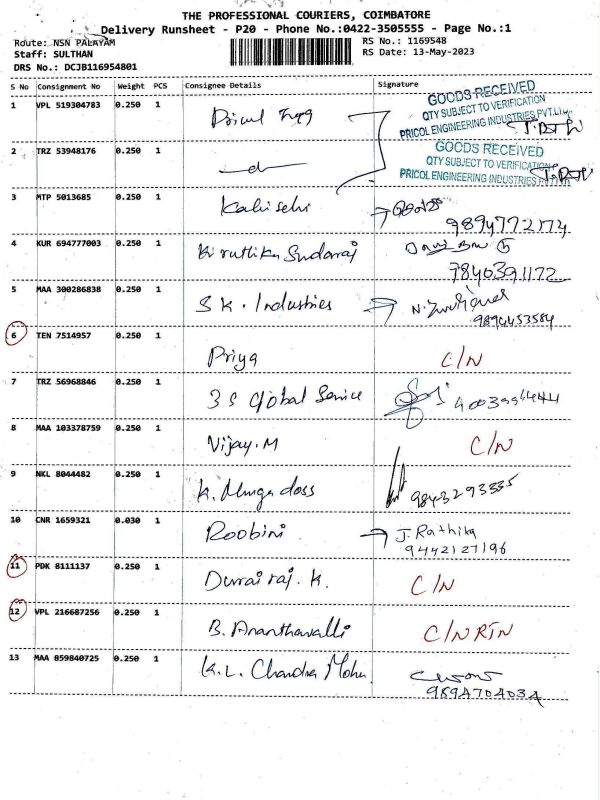 THE PROFESSIONAL COURIERS, COIMBATORE
Delivery Runsheet - P20 - Phone No.:0422-3505555 - Page No.:1
Route: NSN PALAYAM
RS No.: 1169548
Staff: SULTHAN
RS Date: 13-May-2023
DRS No.: DCJB116954801
S No Consignment No Weight PCS Consignee Details Signature
1 VPL 519304783 0.250 1 Pricol Engg
GOODS RECEIVED
QTY SUBJECT TO VERIFICATION
PRICOL ENGINEERING INDUSTRIES PVT.LTD.
2 TRZ 53948176 0.250 1 -d-
GOODS RECEIVED
QTY SUBJECT TO VERIFICATION
PRICOL ENGINEERING INDUSTRIES
3 MTP 5013685 0.250 1 Kalai selvi
9894772174
4 KUR 694777003 0.250 1 Kiruthika Sundarraj
7840391172
5 MAA 300286838 0.250 1 S K . Industries
9894453584
6 TEN 7514957 0.250 1 Priya C/N
7 TRZ 56968846 0.250 1 3 S Global Service
8 MAA 103378759 0.250 1 Vijay. M C/N
9 NKL 8044482 0.250 1 K. Murugadoss 9843293335
10 CNR 1659321 0.030 1 Roobini J. Rathika
9442127196
11 PDK 8111137 0.250 1 Durairaj. K. C/N
12 VPL 216687256 0.250 1 B. Ananthavalli C/N RTN
13 MAA 859840725 0.250 1 K. L. Chandra Mohan
9894704034